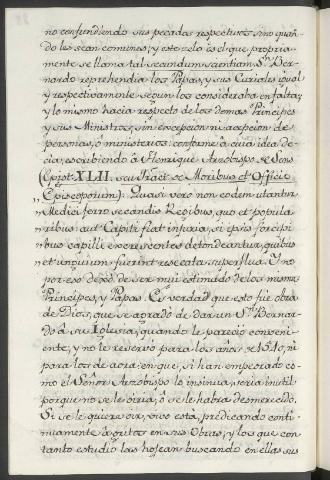 no confundiendo sus pecados respectivos sino quan-
do les sean comunes; y este zelo es el que propria-
mente se llama tal secundum scientiam Sn. Ber-
nardo reprehendia los Papas, y sus Curiales igual
y respectivamente segun los consideraba en falta;
y lo mismo hacia respecto de los demas Principes
y sus Ministros, sin excepcion ni acepcion de
personas, o ministerios: conforme à cuia idea de-
cia, escribiendo à Henrique Arzobispo de Sens
(Epist. XLII. seu Tract. de Moribus et Officio
Episcoporum): Quasi vero non eodem utantur
Medici ferro secandis Regibus, quo et popula-
ribus aut Capiti fiat injuria, si ipsis forcipi-
bus capilli excrescentes detondeantur, quibus
et unguium fuerint resecata superflua. Y no
por eso dexò de ser mui estimado de los mismos
Principes, y Papas. Es verdad que esto fue obra
de Dios, que se agradò de dar un Sn. Bernar-
do à su Iglesia, quando le pareciò conveni-
ente; y no le reservò para los años de 1510, ni
para los de aora, en que, si han empeorado co-
mo el Señor Arzobispo lo insinua, seria inutil
porque no se le oiria, ò se le habrà desmerecido.
Si se le quiere oir, vivo està, predicando conti-
nuamente à gritos en sus Obras; y los que con
tanto estudio las hojean buscando en ellas sus